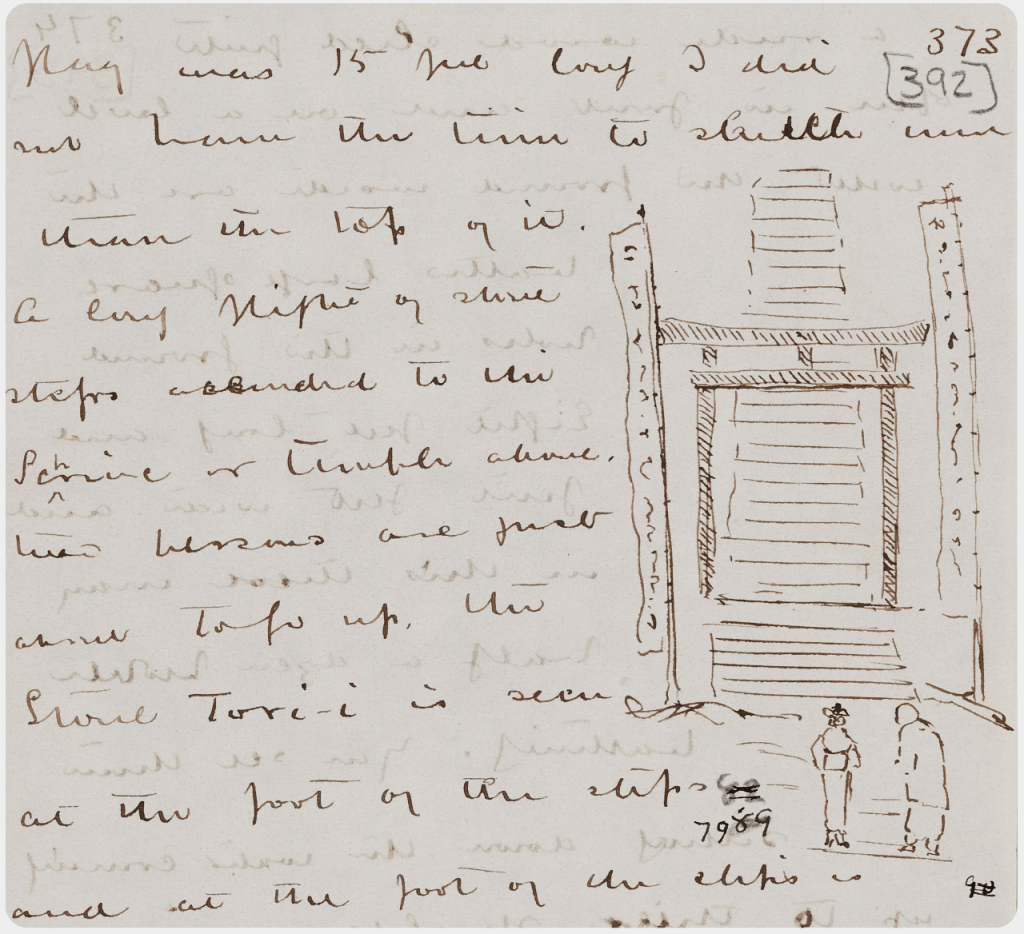 373
flag was 15 feet long I did [392]
not have the time to sketch more
than the top of it.
A long flight of stone
steps ascended to the
Schrine or temple above.
two persons are just
about to go up. the
Stone Tori-i is seen
at the foot of the steps
7989
and at the foot of the steps is